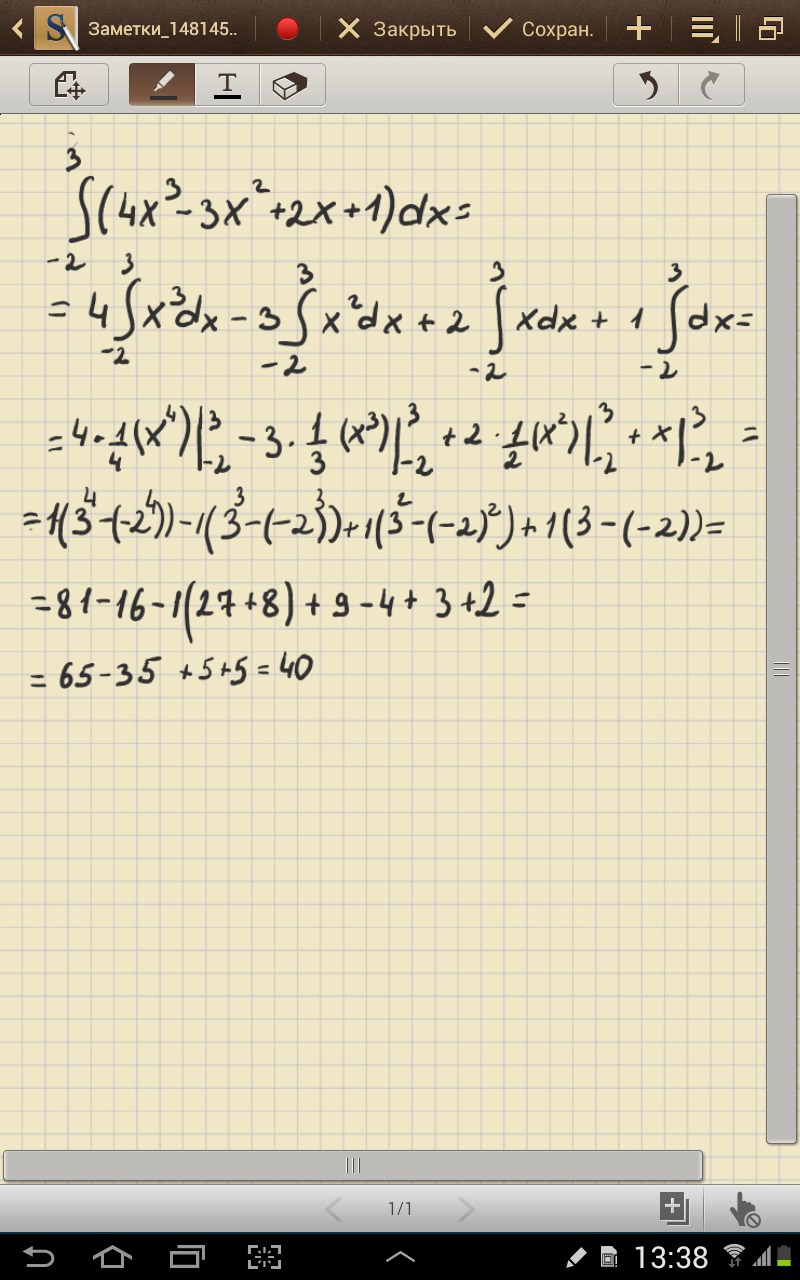 Заметки_148145..
Закрыть
Сохран.
T
∫₋₂³(4x³-3x²+2x+1)dx=
=4∫₋₂³x³dx-3∫₋₂³x²dx+2∫₋₂³xdx+1∫₋₂³dx=
=4·1/4(x⁴)|₋₂³-3·1/3(x³)|₋₂³+2·1/2(x²)|₋₂³+x|₋₂³=
=1(3⁴-(-2⁴))-1(3³-(-2³))+1(3²-(-2)²)+1(3-(-2))=
=81-16-1(27+8)+9-4+3+2=
=65-35+5+5=40
1/1
13:38